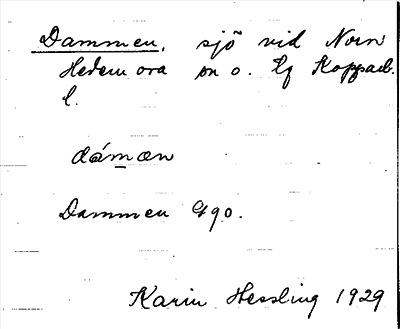 Dammen, sjö vid Norn
Hedemora sn o. Hg Kopparb.
l.
dámæn
Dammen G90.
Karin Hessling 1929